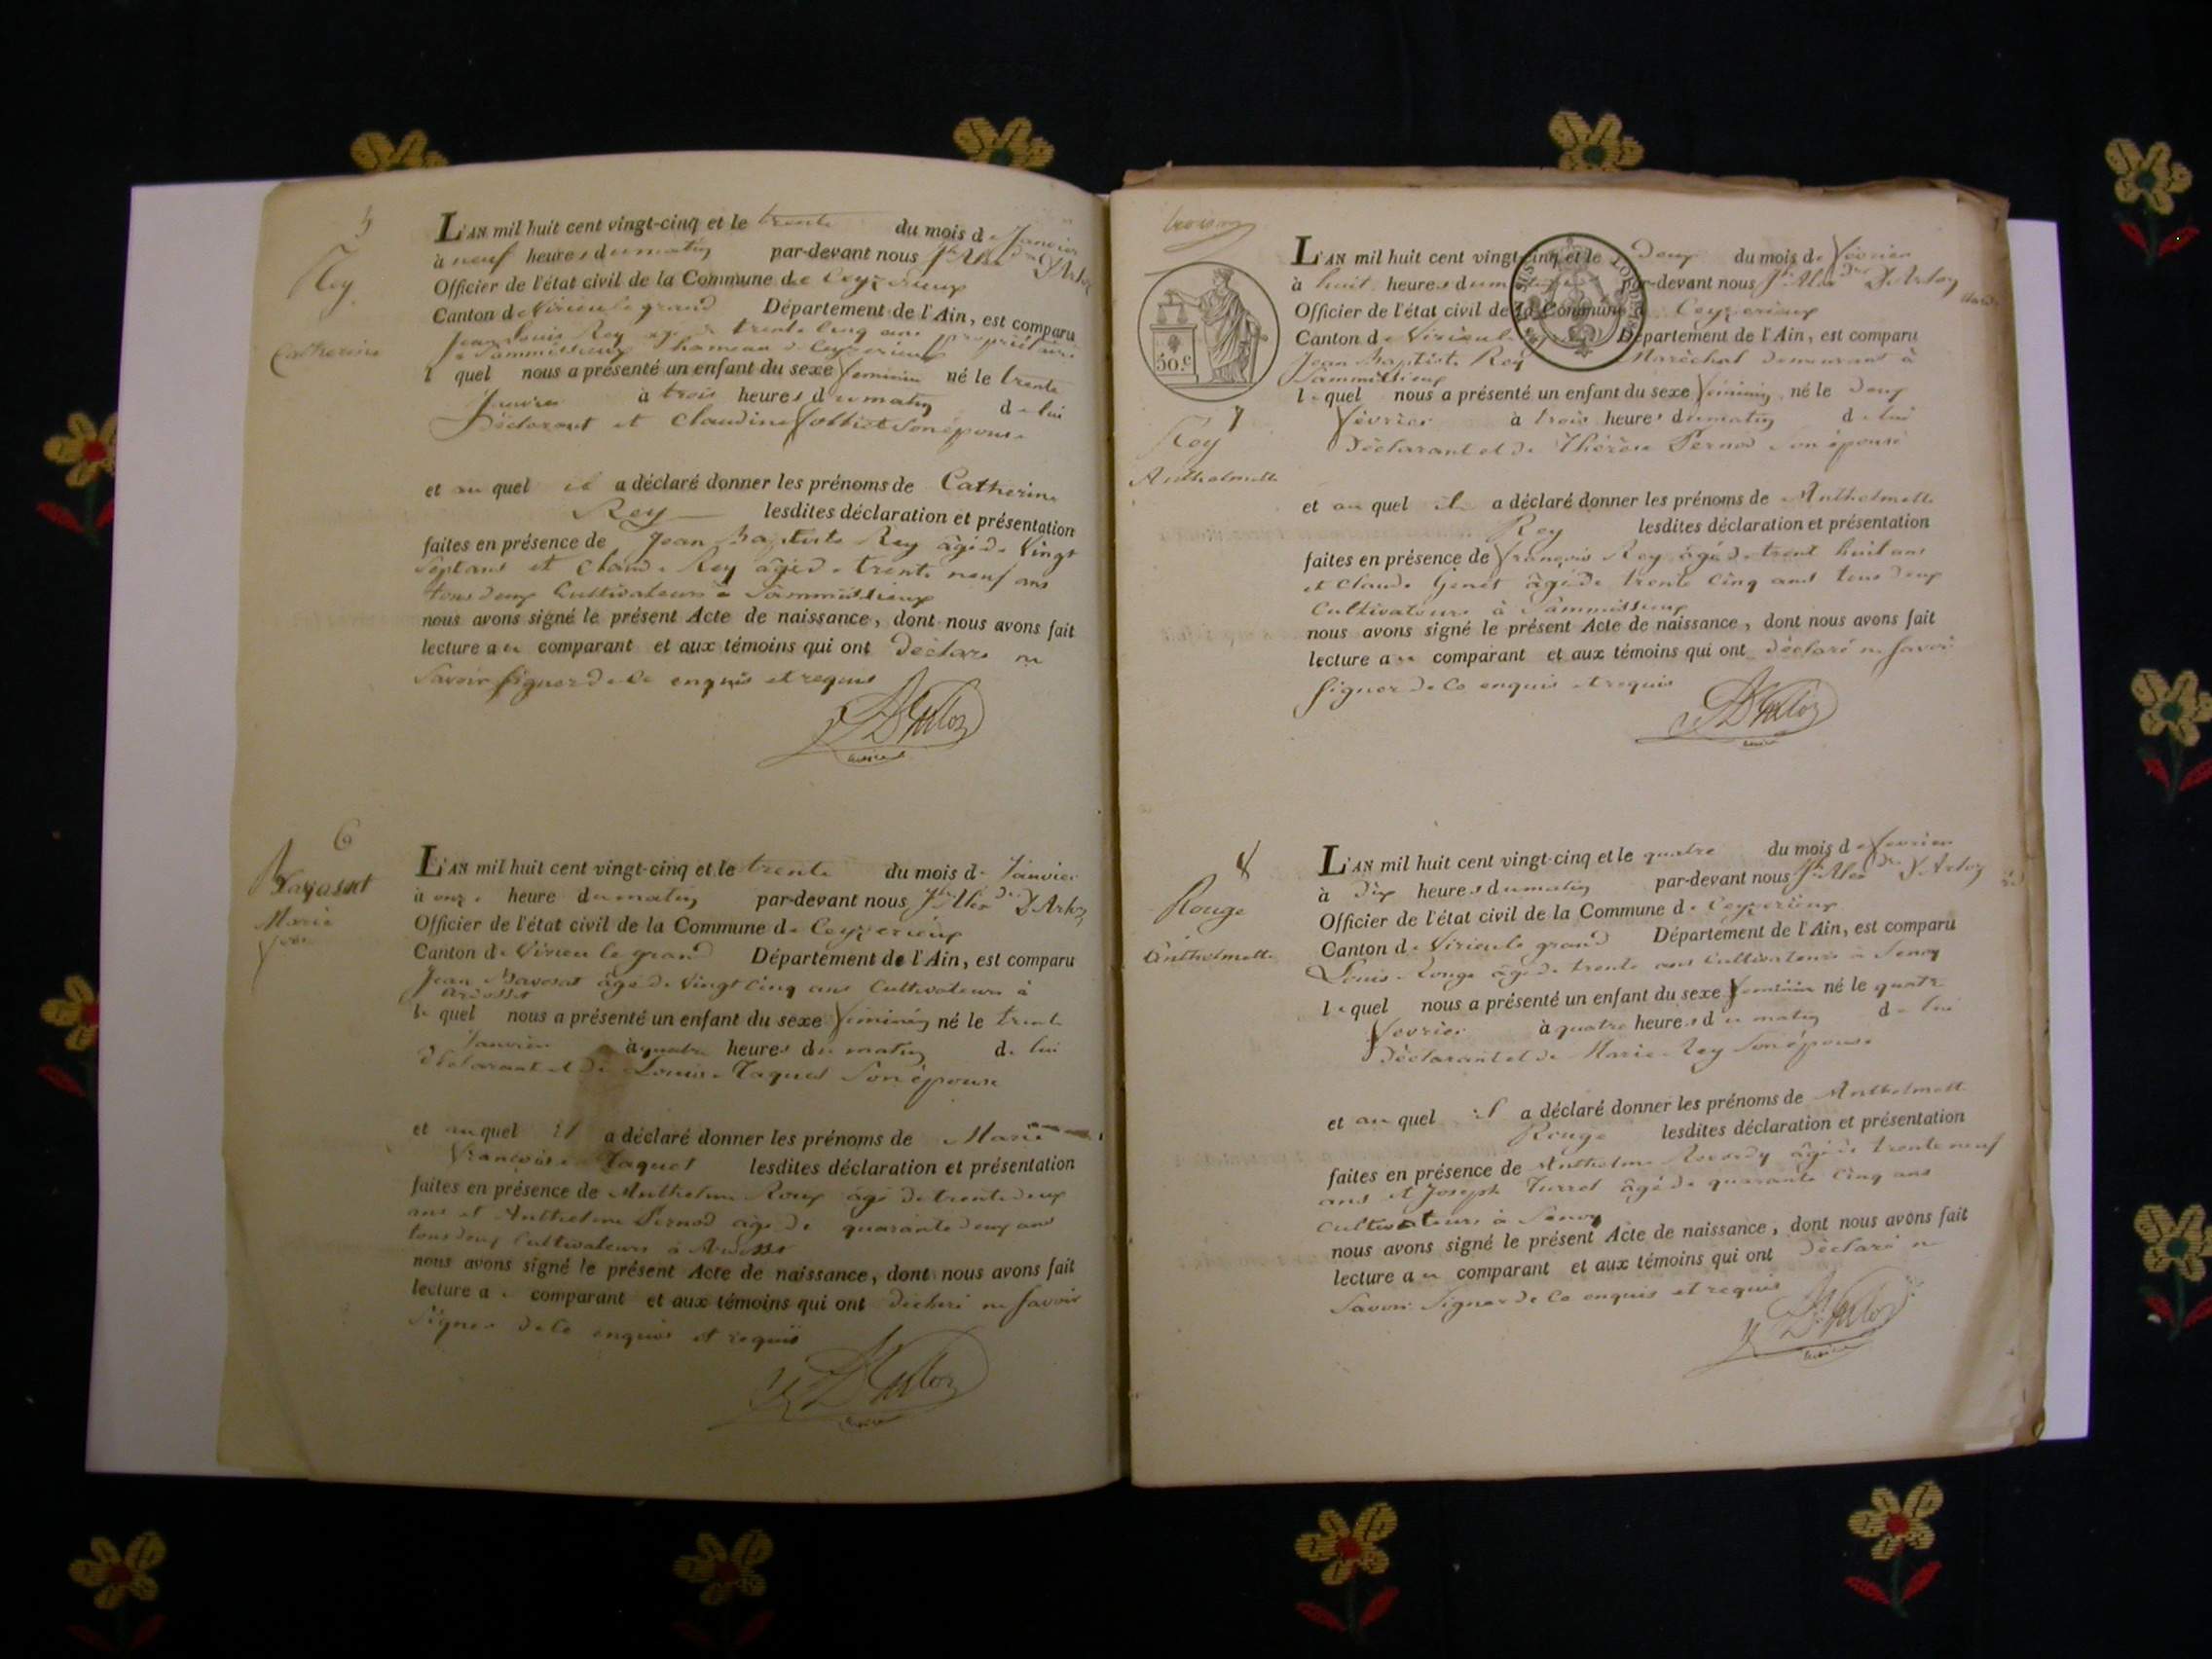 5
Rey
Catherine
L'AN mil huit cent vingt-cinq et le trente du mois de Janvier
à neuf heures du matin par-devant nous Jh Alexdre D'Artoz
Officier de l'état civil de la Commune de Ceyzerieux
Canton de Virieu le grand Département de l'Ain, est comparu
Jean Louis Rey agé de trente cinq ans propriétaire
à Sammissieux hameau de Ceyzerieux
lequel nous a présenté un enfant du sexe féminin né le trente
Janvier à trois heures du matin de lui
Déclarant et Claudine son épouse
et auquel il a déclaré donner les prénoms de Catherine
Rey lesdites déclaration et présentation
faites en présence de Jean Baptiste Rey âgé de vingt
sept ans et Claude Rey âgé de trente neuf ans
tous deux Cultivateurs à Sammissieux
nous avons signé le présent Acte de naissance, dont nous avons fait
lecture au comparant et aux témoins qui ont Déclaré ne
Savoir signer de ce enquis et requis
6
Bavosat
Marie
L'AN mil huit cent vingt-cinq et le trente du mois de Janvier
à onze heure du matin par-devant nous Jh Alexdre D'Artoz
Officier de l'état civil de la Commune de Ceyzerieux
Canton de Virieu le grand Département de l'Ain, est comparu
Jean Bavosat âgé de vingt cinq ans Cultivateur à
Ardosset
le quel nous a présenté un enfant du sexe féminin né le trente
Janvier à quatre heures du matin de lui
Déclarant et de Louise Jaquet Son épouse
et auquel il a déclaré donner les prénoms de Marie
Françoise Jaquet lesdites déclaration et présentation
faites en présence de Anthelme Roux âgé de trente deux
ans et Anthelme Pernod âgé de quarante deux ans
tous deux Cultivateurs à Ardosset
nous avons signé le présent Acte de naissance, dont nous avons fait
lecture a comparant et aux témoins qui ont déclaré ne savoir
Signer de ce enquis et requis
50.c
7
Rey
Anthelmette
L'AN mil huit cent vingt-cinq et le deux du mois de février
à huit heures du matin par-devant nous Jh Alexdre D'Artoz
Officier de l'état civil de la Commune de Ceyzerieux
Canton de Virieu le grand Département de l'Ain, est comparu
Jean Baptiste Rey Maréchal demeurant à
Sammissieux
lequel nous a présenté un enfant du sexe féminin né le deux
février à trois heures du matin de lui
Déclarant et de Thérèse Pernod son épouse
et au quel il a déclaré donner les prénoms de Anthelmette
Rey lesdites déclaration et présentation
faites en présence de françois Rey âgé de trent huit ans
et Claude Genet âgé de trente cinq ans tous deux
Cultivateurs à Sammissieux
nous avons signé le présent Acte de naissance, dont nous avons fait
lecture au comparant et aux témoins qui ont déclaré ne savoir
signer de ce enquis et requis
8
Rouge
Anthelmette
L'AN mil huit cent vingt-cinq et le quatre du mois de fevrier
à dix heures du matin par-devant nous Jh Alexdre D'Artoz
Officier de l'état civil de la Commune de Ceyzerieux
Canton de Virieu le grand Département de l'Ain, est comparu
Louis Rouge âgé de trente ans Cultivateur à Senoy
lequel nous a présenté un enfant du sexe féminin né le quatre
février à quatre heures du matin de lui
Déclarant et de Marie Rey Son épouse
et au quel il a déclaré donner les prénoms de Anthelmette
Rouge lesdites déclaration et présentation
faites en présence de Anthelme âgé de trente neuf
ans et Joseph Turrel âgé de quarante cinq ans
Cultivateurs à Senoy
nous avons signé le présent Acte de naissance, dont nous avons fait
lecture au comparant et aux témoins qui ont déclaré ne
Savoir Signer de ce enquis et requis